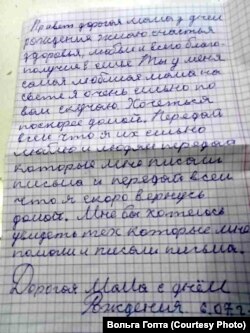 Привет дорогая мама у днём
рождения желаю счастья
здоровья, любви и всего благо
получие в семье Ты у меня
самая любишая мама на
свете я очень сильно по
вам скучаю. Хочеться
поскорее домой. Передай
всем что я их сильно
люблю и людям передай
которые мне писали
письма и передай всем
что я скоро вернусь
домой. Мне бы хотелось
увидеть тех которые мне
помогли и писали письма.
Дорогая Мама с днём
Рождения 6.07.2
Вольга Гопта (Courtesy Photo)